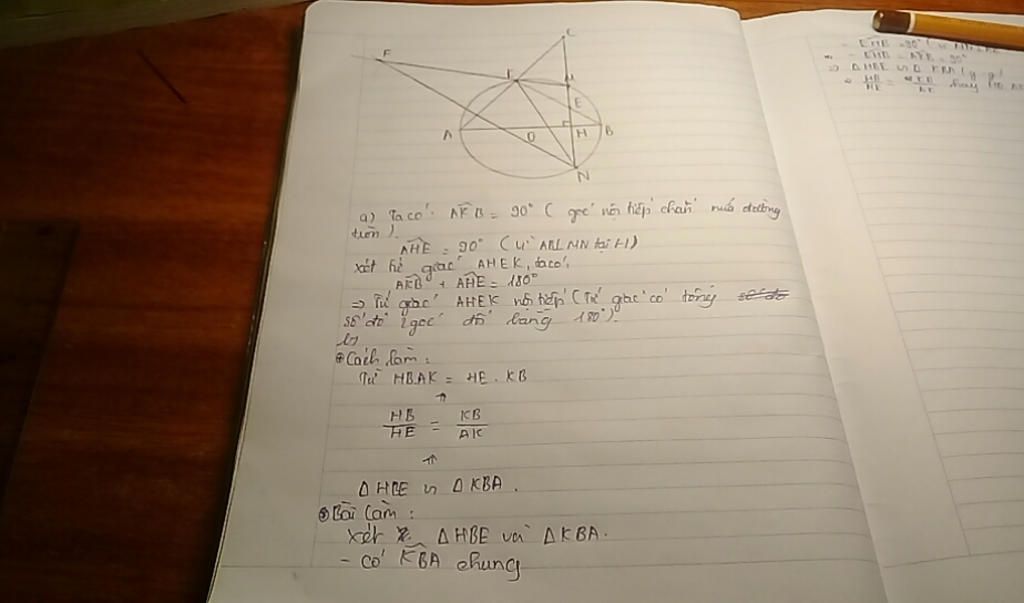 C
F
K
M
E
A
O
H
B
N
a) Ta có: AKB = 90° (góc nội tiếp chắn nửa đường
tròn).
AHE = 90° (vì AB⊥MN tại H)
xét tứ giác AHEK, ta có:
AKB + AHE = 180°
=> Tứ giác AHEK nội tiếp (Tứ giác có tổng số đo
số đo 2 góc đối bằng 180°).
b)
Cách làm:
Từ HB.AK = HE.KB
⇑
HB/HE = KB/AK
⇑
Δ HBE ∽ Δ KBA.
Bài làm:
xét Δ HBE và Δ KBA.
- có KBA chung
- EHB = 90°
- EHB = AKB = 90°
=> Δ HBE ∽ Δ KBA (g-g)
HB/HE = KB/AK hay